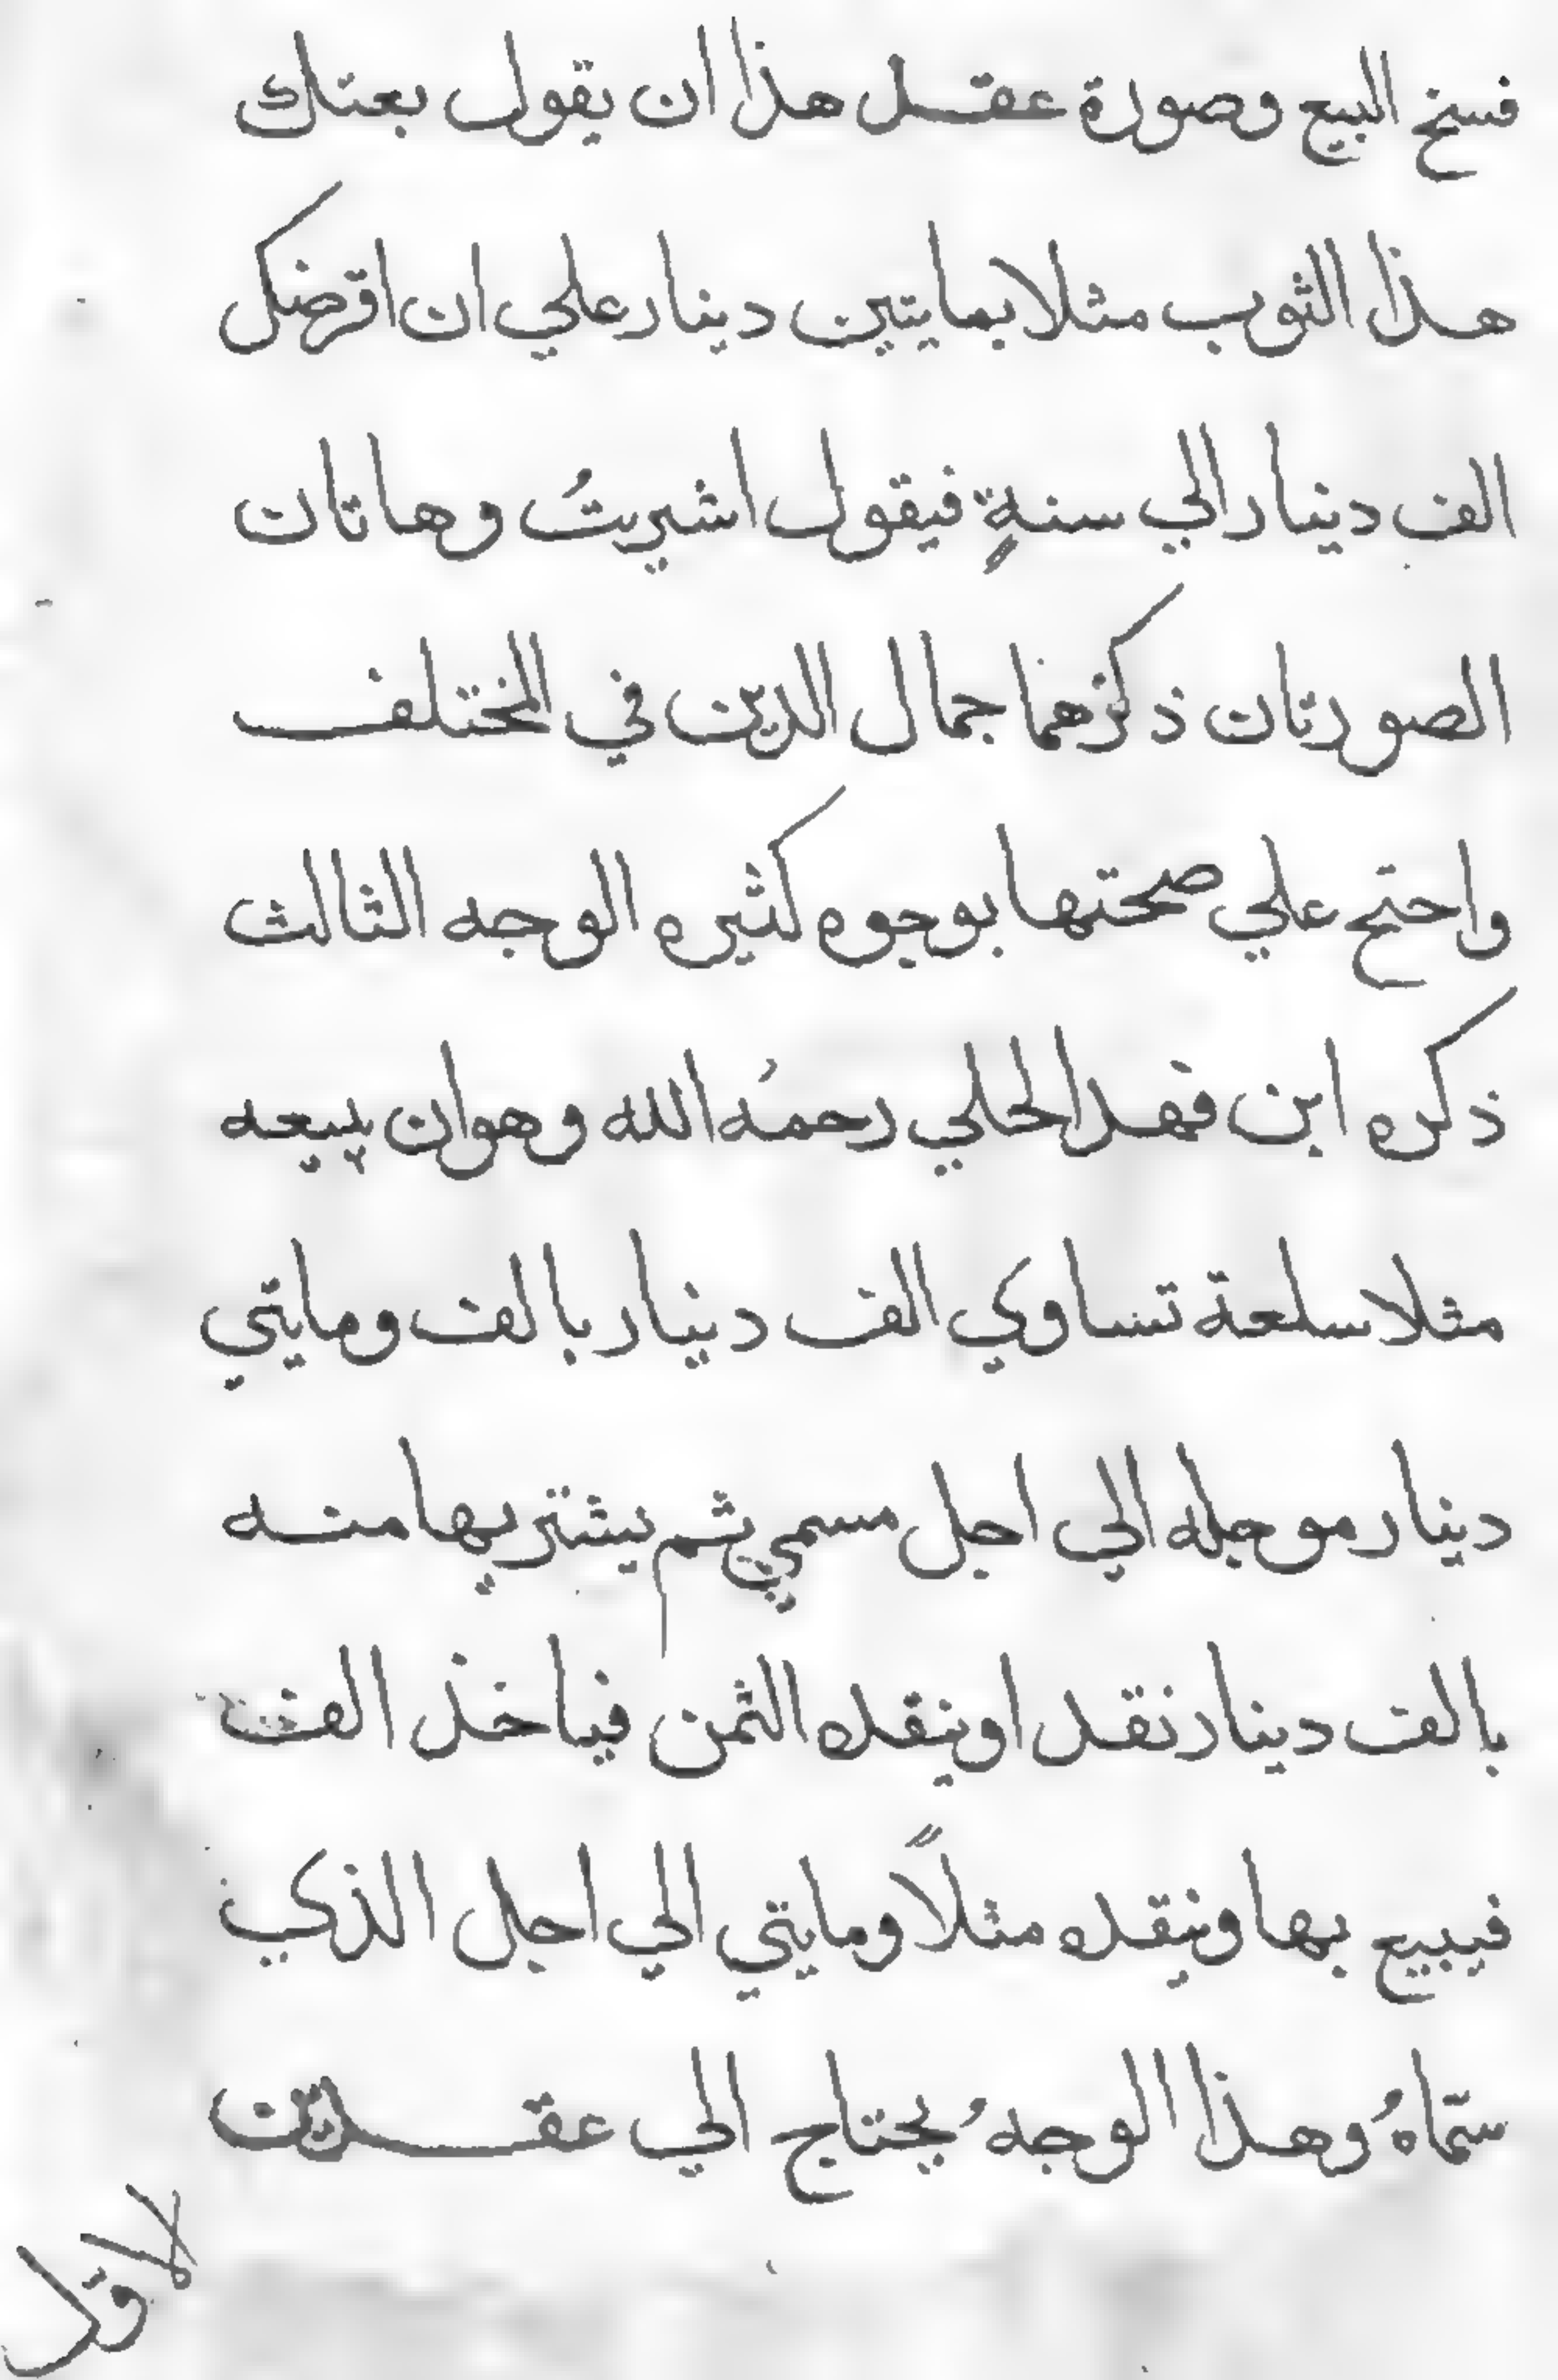 فسخ البيع وصورة عقد هذا ان يقول بعتك
هذا الثوب مثلا بمايتين دينار علي ان اقرضك
الف دينار الي سنةٍ فيقول اشريتُ وهاتان
الصورتان ذكرهما جمال الدين في المختلف
واحتج علي صحتها بوجوه كثيره الوجه الثالث
ذكره ابن فهد الحلي رحمُه الله وهو ان يبيعه
مثلا سلعة تساوي الف دينار بالف ومايتي
دينار موجله الي اجل مسمي ثم يشتريها منه
بالف دينار نقد اوينقده الثمن فياخذ الف
فيبيع بها وينقده مثلاً ومايتي الي اجل الذي
سمّاهُ وهذا الوجهُ يحتاج الي عقدين
لاوّل